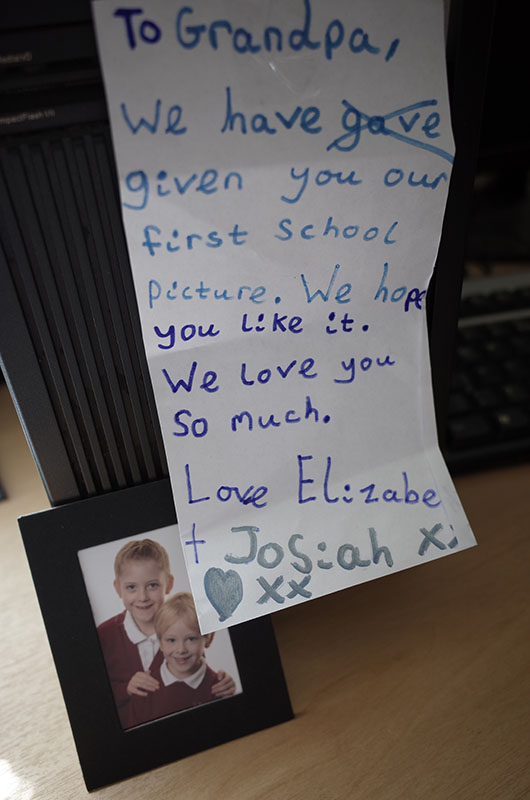 To Grandpa,
We have gave
given you our
first school
picture. We hope
you like it.
We love you
So much.
Love Elizabe
+ Josiah x
xx
CompactFlash I/II